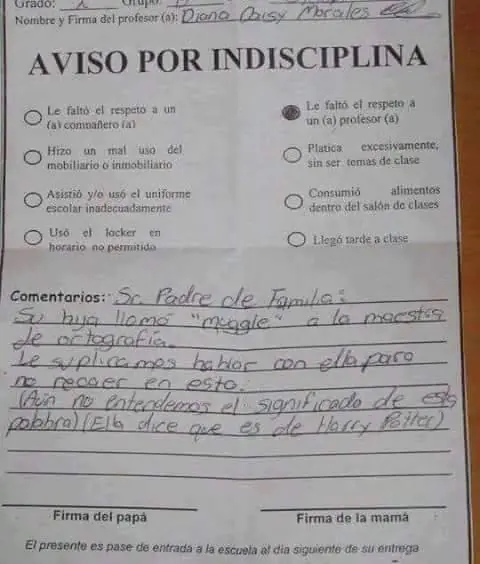 Grado: 
Nombre y Firma del profesor (a): Diana Daisy Morales
AVISO POR INDISCIPLINA
Le faltó el respeto a un (a) compañero (a)
Le faltó el respeto a un (a) profesor (a)
Hizo un mal uso del mobiliario o inmobiliario
Platica excesivamente, sin ser temas de clase
Asistió y/o usó el uniforme escolar inadecuadamente
Consumió alimentos dentro del salón de clases
Usó el locker en horario no permitido
Llegó tarde a clase
Comentarios: Sr. Padre de Familia:
Su hija llamó "muggle" a la maestra
de ortografía.
Le suplicamos hablar con ella para
no recaer en esto.
(Aún no entendemos el significado de esta
palabra) (Ella dice que es de Harry Potter)
Firma del papá
Firma de la mamá
El presente es pase de entrada a la escuela al día siguiente de su entrega